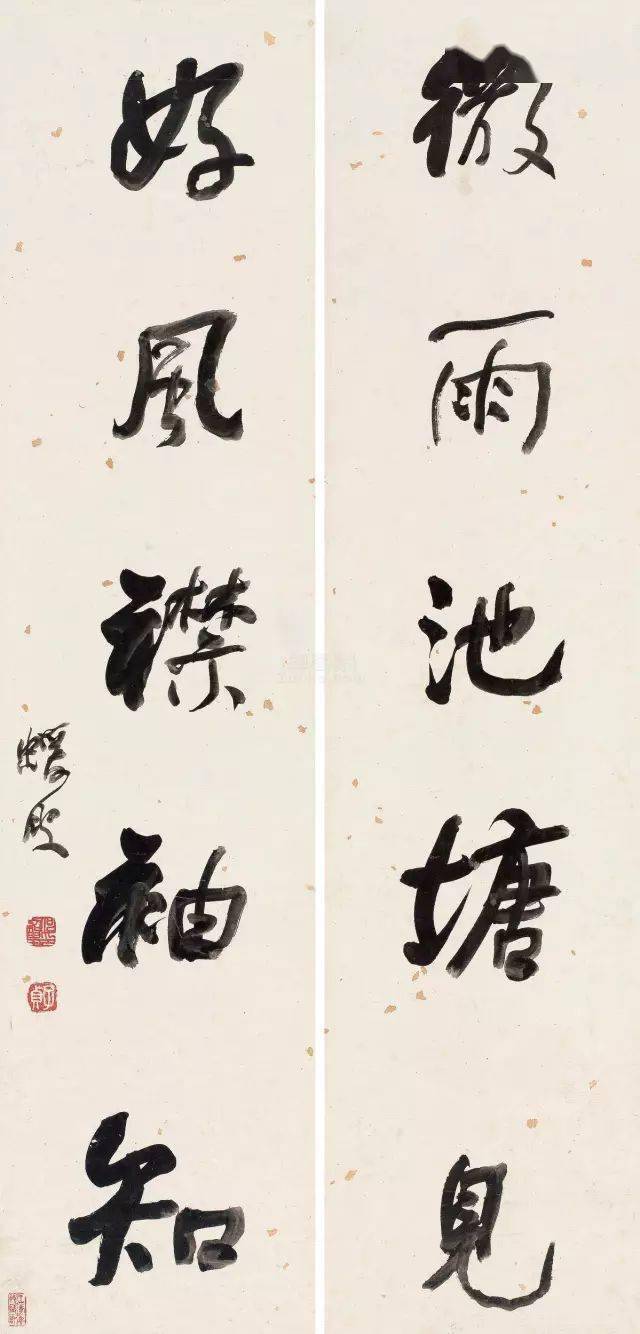 微雨池塘見
好風襟袖知
蝯叟
子貞